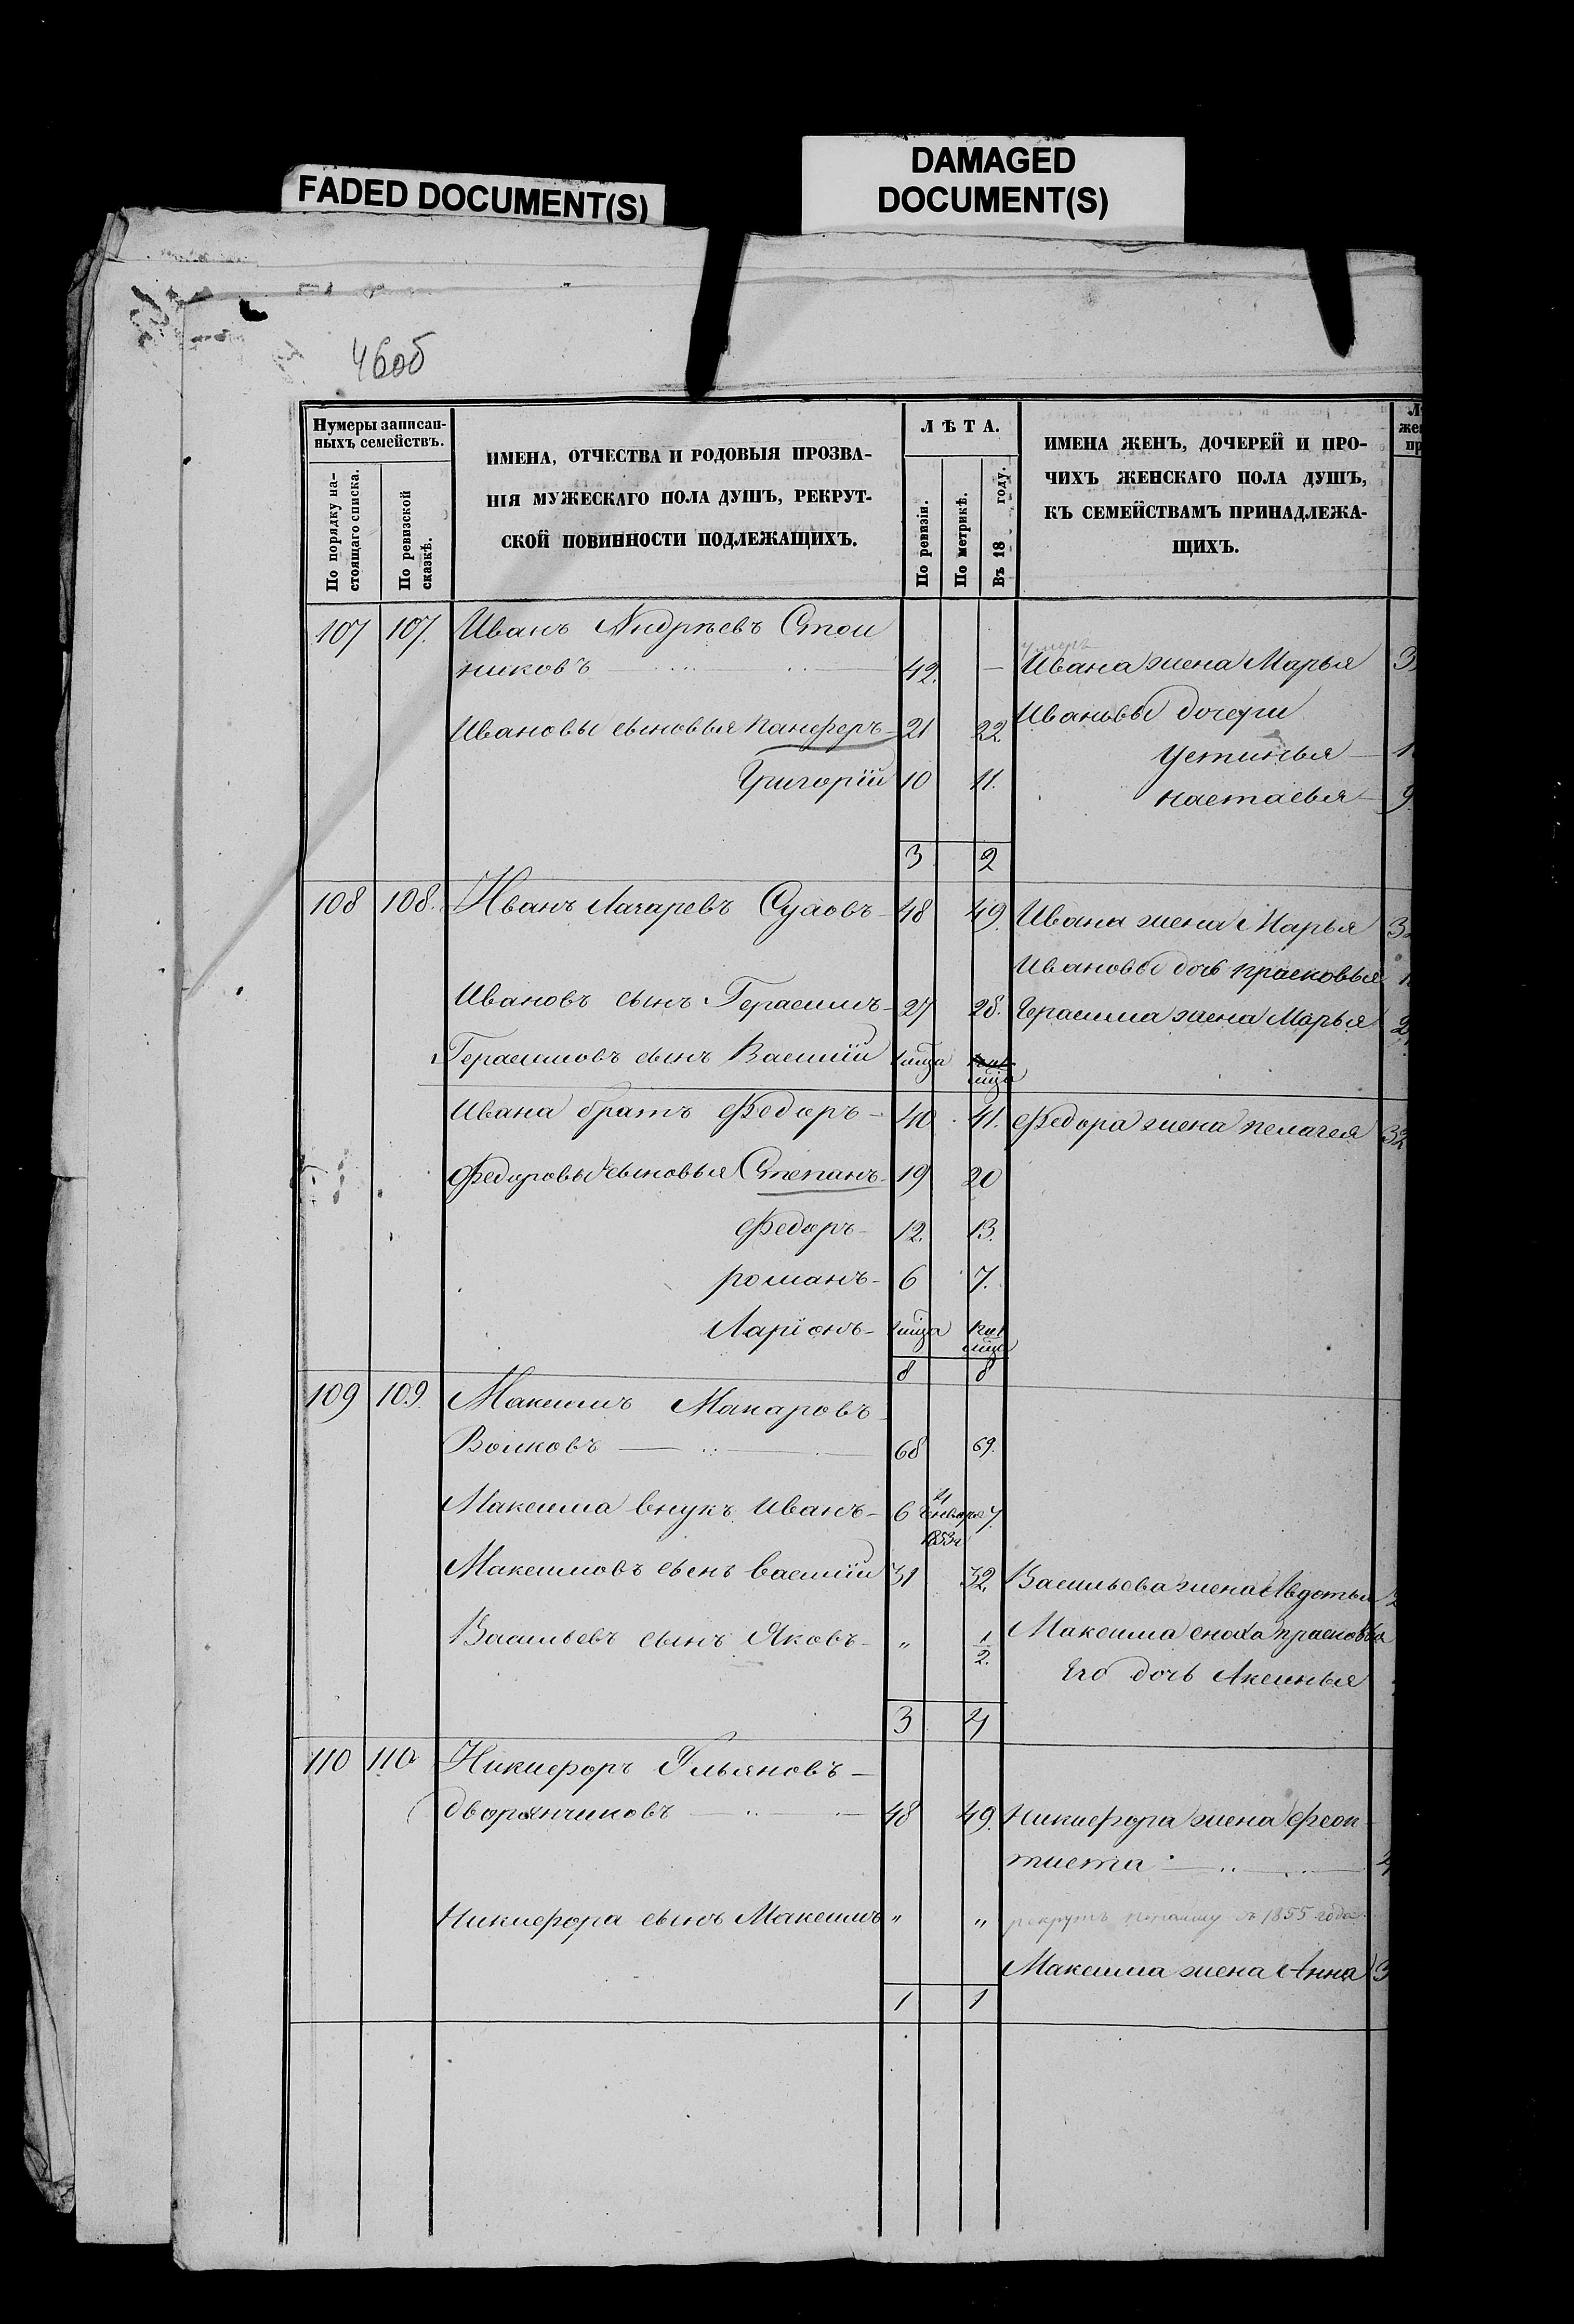 FADED DOCUMENT(S)
DAMAGED
DOCUMENT(S)
46об
Нумеры записан-
ныхъ семействъ.
По порядку на-
стоящаго списка.
По ревизской
сказкѣ.
ИМЕНА, ОТЧЕСТВА И РОДОВЫЯ ПРОЗВА-
НІЯ МУЖЕСКАГО ПОЛА ДУШЪ, РЕКРУТ-
СКОЙ ПОВИННОСТИ ПОДЛЕЖАЩИХЪ.
ЛѢТА.
По ревизіи.
По метрикѣ.
Въ 18 году.
ИМЕНА ЖЕНЪ, ДОЧЕРЕЙ И ПРО-
ЧИХЪ ЖЕНСКАГО ПОЛА ДУШЪ,
КЪ СЕМЕЙСТВАМЪ ПРИНАДЛЕЖА-
ЩИХЪ.
107 107. Иванъ Андрѣевъ
умеръ
никовъ 42. — Ивана жена Марья
Ивановы сыновья Панферъ 21 22. Ивановы дочери
Устинья
Григорій 10 11. Настасья 9
3 2
108 108. Иванъ Лазаревъ 48 49. Ивана жена Марья
Ивановы дочь Прасковья
Ивановъ сынъ Герасимъ 27 28. Герасима жена Марья
Герасимовъ сынъ Василій
Ивана братъ Федоръ 40 41. Федора жена Пелагея 32
Федоровы сыновья Степанъ 19 20
Федоръ 12. 13.
Романъ 6 7.
Ларіонъ
8 8
109 109. Максимъ Макаровъ
Волковъ 68 69.
Максима внукъ Иванъ 6 Января 7
1853
Максимовъ сынъ Василій 31 32. Васильева жена Авдотья
Васильевъ сынъ Яковъ „ 1/2. Максима сноха Прасковья
Его дочь Аксинья
3 4
110 110 Никифоръ Ульяновъ
Дворянчиковъ 48 49. Никифора жена Феок
тиста
Никифора сынъ Максимъ „ „ рекрутъ 1855 года
Максима жена Анна
1 1